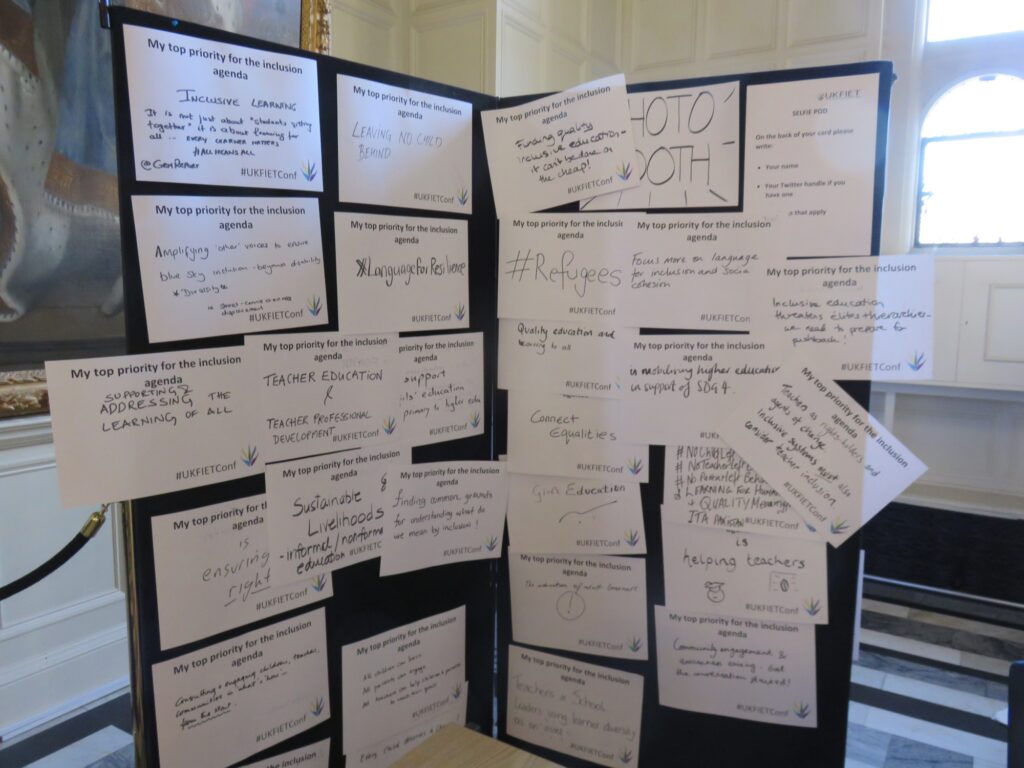 My top priority for the inclusion
agenda
INCLUSIVE LEARNING
It is not just about "students sitting
together" it is about learning for
all ... EVERY LEARNER MATTERS
#ALLMEANSALL
#UKFIETConf
My top priority for the inclusion
agenda
LEAVING NO CHILD
BEHIND
#UKFIETConf
My top priority for the inclusion
agenda
Funding quality
inclusive education -
it can't be done on
the cheap!
#UKFIETConf
HOTO
OTH
UKFIET
SELFIE POD
On the back of your card please
write:
• Your name
• Your Twitter handle if you
have one
that apply
My top priority for the inclusion
agenda
Amplifying 'other' voices to ensure
blue sky inclusion - beyond disability
displacement
#UKFIETConf
My top priority for the inclusion
agenda
#LanguageforResilience
#UKFIETConf
My top priority for the inclusion
agenda
#Refugees
#UKFIETConf
My top priority for the inclusion
agenda
Focus more on language
for inclusion and social
cohesion
#UKFIETConf
My top priority for the inclusion
agenda
Inclusive education
threatens élites + hierarchies -
we need to prepare for
pushback!
#UKFIETConf
My top priority for the inclusion
agenda
SUPPORTING &
ADDRESSING THE
LEARNING OF ALL
#UKFIETConf
My top priority for the inclusion
agenda
TEACHER EDUCATION
&
TEACHER PROFESSIONAL
DEVELOPMENT
#UKFIETConf
for the inclusion
agenda
support
girls' education
primary to higher edu
#UKFIETConf
Quality education and
learning to all
#UKFIETConf
My top priority for the inclusion
agenda
is mobilising higher education
in support of SDG 4.
#UKFIETConf
My top priority for the inclusion
agenda
Teachers as rights-holders and
agents of change
Inclusive systems must also
consider teacher inclusion
#UKFIETConf
Connect
Equalities
#UKFIETConf
Sustainable &
Livelihoods
- informal/nonformal
education
#UKFIETC
finding common grounds
for understanding what do
we mean by inclusion!
#UKFIETConf
Girls Education
#UKFIETConf
# No Teacher Left
# No Parent Left Behi
# LEARNING FOR
+ QUALITY
ITA PAKISTAN
#UKFIETConf
My top priority for th
is
ensuring
right
#UKFIETConf
My top priority for the inclusion
agenda
The education of adult learners
!
#UKFIETConf
is
helping teachers
#UKFIETConf
My top priority for the inclusion
agenda
Consulting + engaging children, teachers,
communities in what + how -
from the start.
#UKFIETConf
My top priority for the inclusion
agenda
All children can learn
All parents can engage
All teachers can help children & parents
#UKFIETConf
Every child
My top priority for the inclusion
agenda
Teachers & School
Leaders using learner diversity
as an asset
#UKFIETConf
My top priority for the inclusion
agenda
Community engagement &
#UKFIETConf
the inclusion